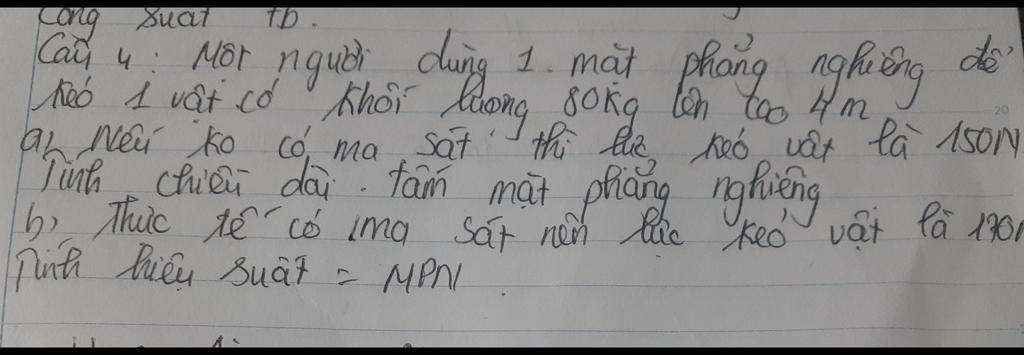 công suất tb.
Câu 4: Một người dùng 1 mặt phẳng nghiêng để
kéo 1 vật có khối lượng 80kg lên cao 4m
a, Nếu ko có ma sát thì lực kéo vật là 150N
Tính chiều dài tấm mặt phẳng nghiêng
b, Thực tế có ma sát nên lực kéo vật là 170N
Tính hiệu suất = MPN